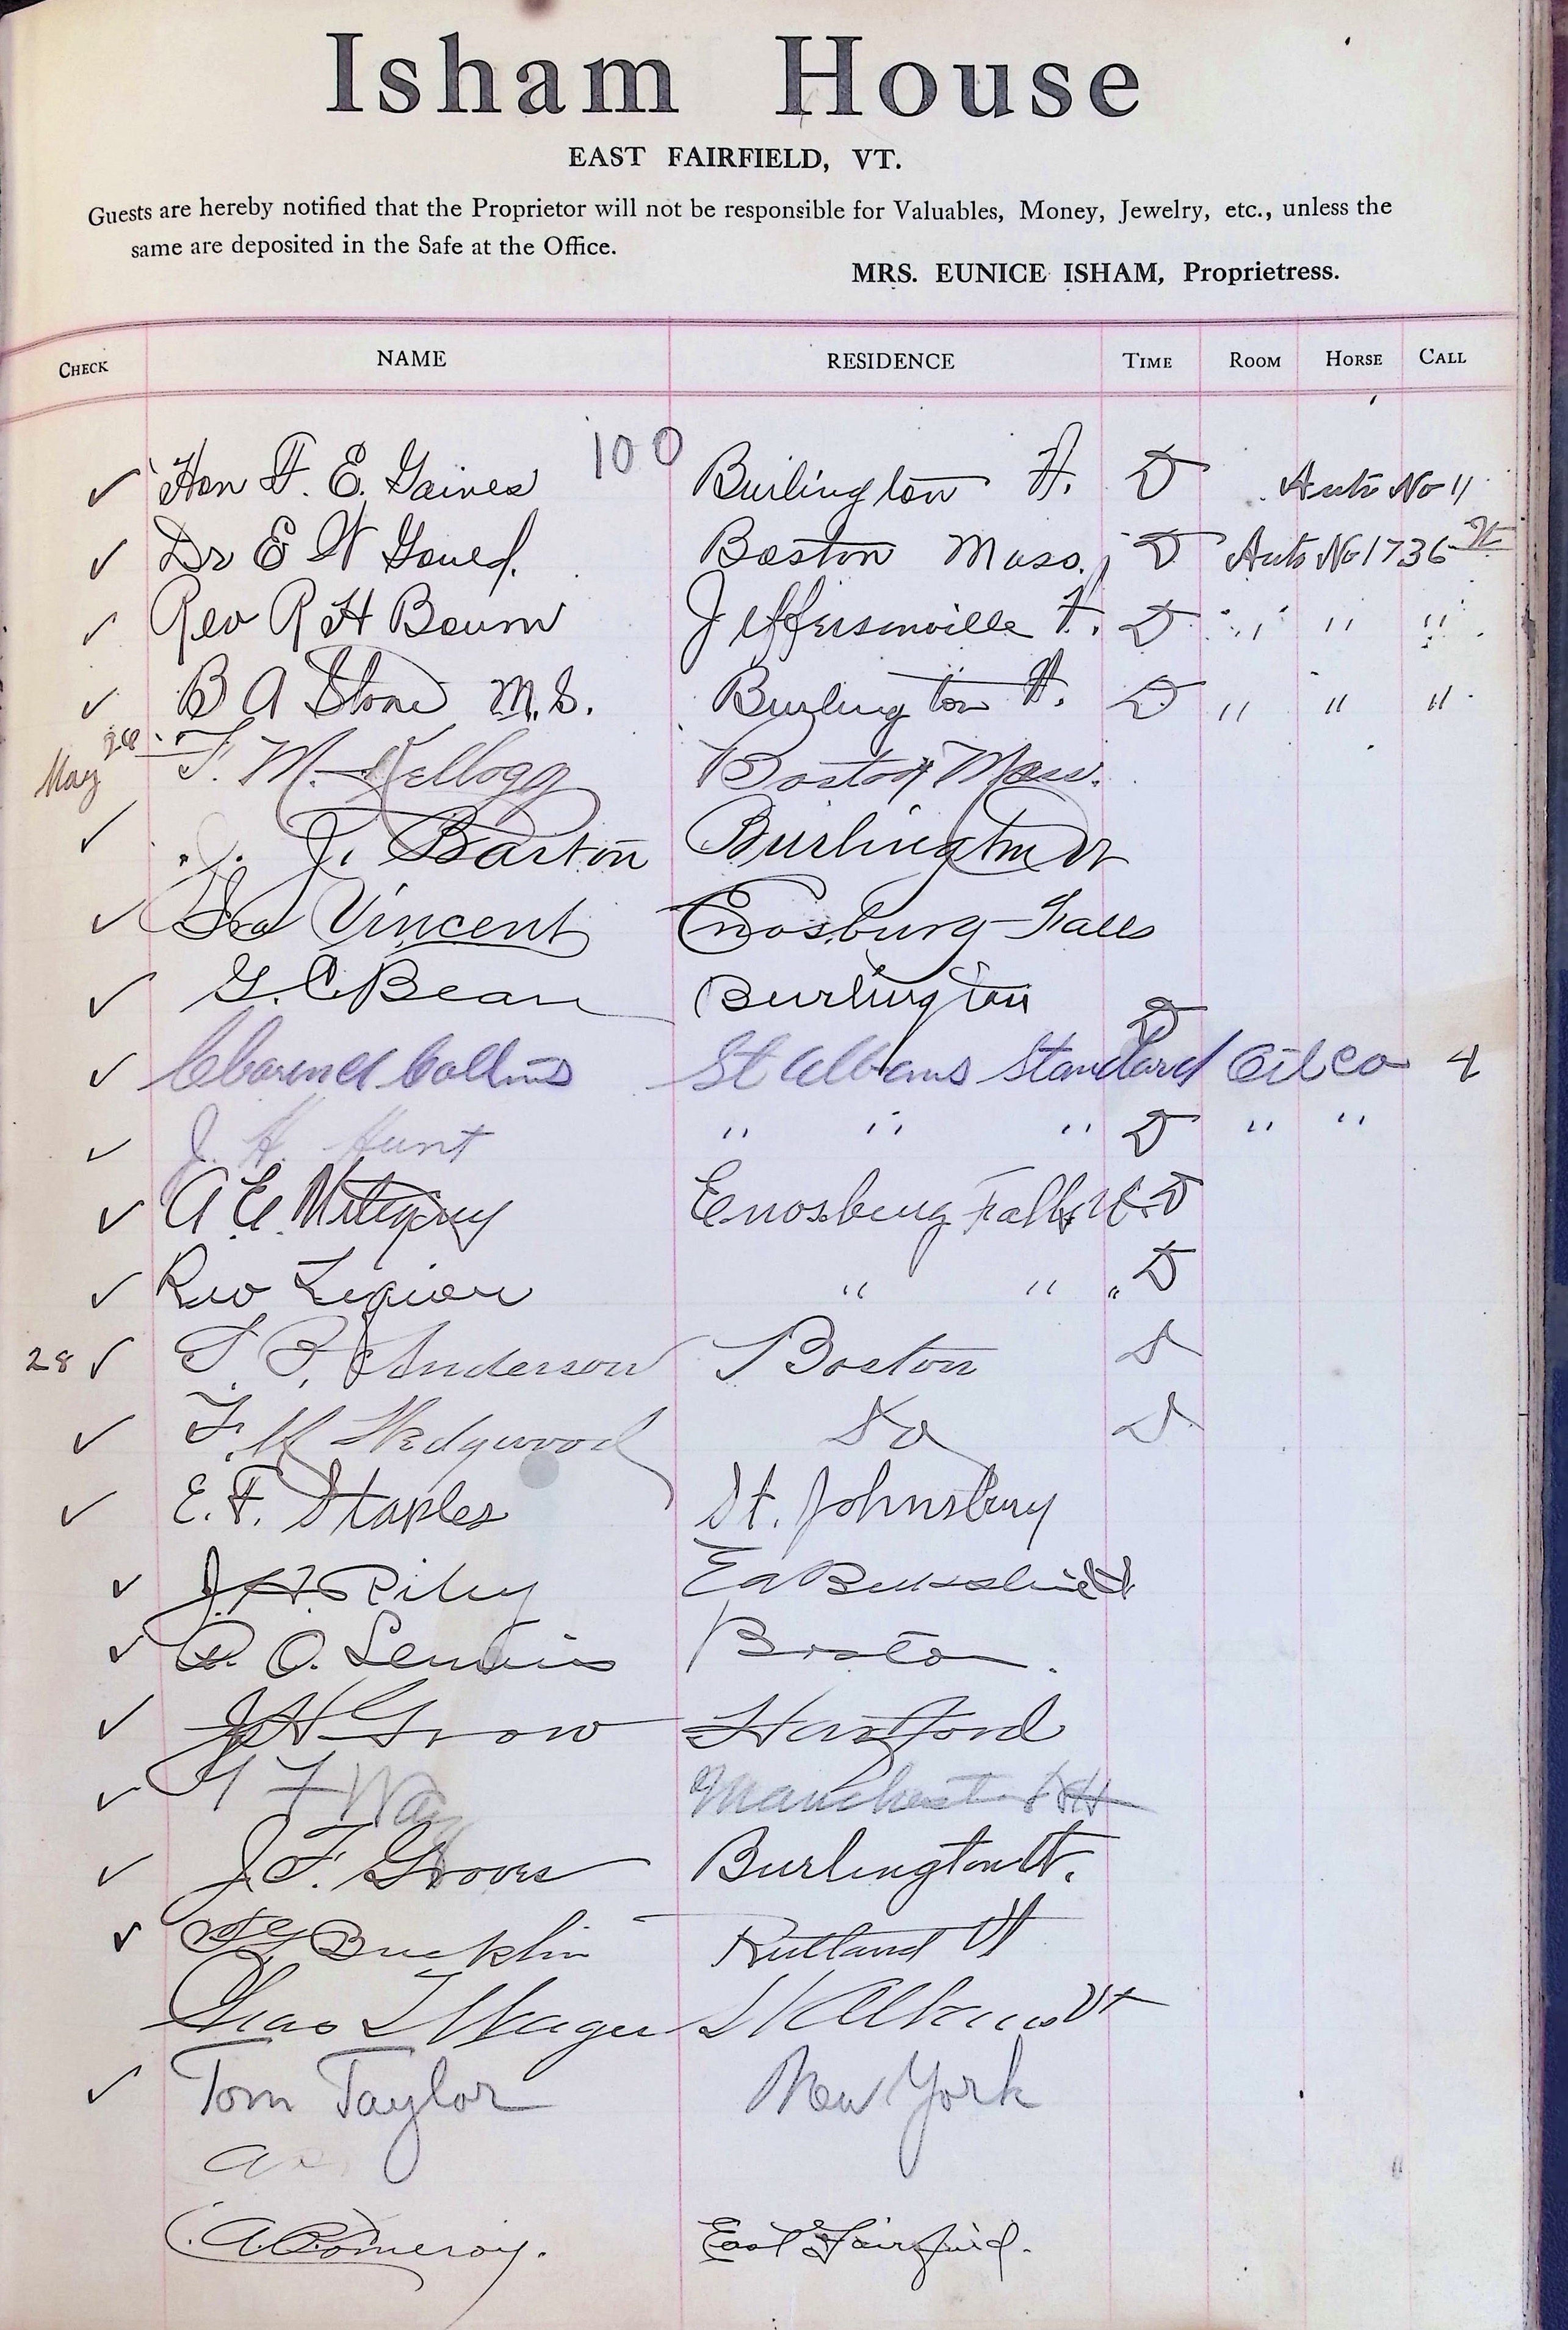 Isham House
EAST FAIRFIELD, VT.
Guests are hereby notified that the Proprietor will not be responsible for Valuables, Money, Jewelry, etc., unless the
same are deposited in the Safe at the Office.
MRS. EUNICE ISHAM, Proprietress.
CHECK NAME RESIDENCE TIME ROOM HORSE CALL
100
✓ Hon F. E. Gaines Burlington Vt. D Auto No 11
✓ Dr E W Gould. Boston Mass. D Auto No 1736 Vt
✓ Rev R H Jeffersonville Vt. D " " "
✓ B A Stone M.D. Burlington Vt. D " " "
May 28 F. M. Kellogg Boston Mass.
✓ J. Barton Burlington Vt
✓ Geo Vincent Enosburg Falls
✓ G. C. Bean Burlington D
✓ Clarence Collins St Albans Standard Oil Co 4
✓ J. H. Hunt " " " D " "
✓ A E Enosburg Falls Vt D
✓ Rev " " " D
28 ✓ Anderson Boston D
✓ F. M Wedgwood Do D
✓ E. F. Staples St. Johnsbury
✓ J. H. Riley Ea Berkshire Vt
✓ O. Boston.
✓ J H Grow Hartford
✓ Way Manchester NH
✓ J. F. Groves Burlington Vt.
✓ Bucklin Rutland Vt
Chas St Albans Vt
✓ Tom Taylor New York
A Pomeroy. East Fairfield.